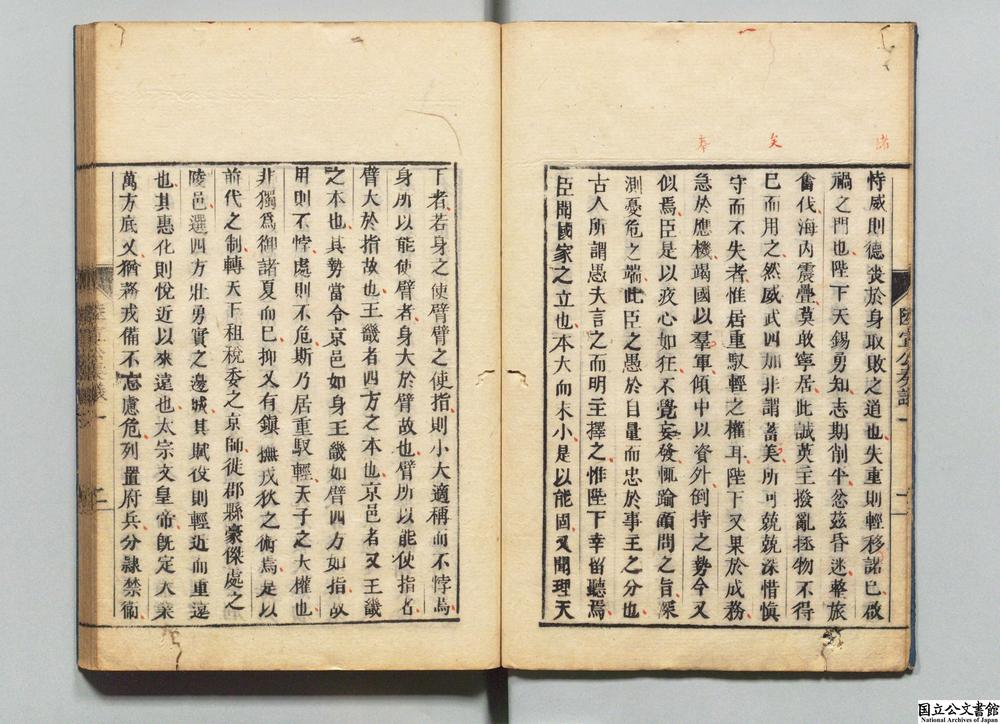 諸
矣
奉
恃威則德喪於身取敗之道也失重則輕移諸己啟
禍之門也陛下天錫勇知志期削平忿玆昏迷整旅
奮伐海內震疊莫敢寧居此誠英主撥亂拯物不得
已而用之然威武四加非謂蓄美所可兢兢深惜愼
守而不失者惟居重馭輕之權耳陛下又果於成務
急於應機竭國以羣軍傾中以資外倒持之勢今又
似焉臣是以疚心如狂不覺妄發輒踰顧問之旨深
測憂危之端此臣之愚於自量而忠於事主之分也
古人所謂愚夫言之而明主擇之惟陛下幸留聽焉
臣聞國家之立也本大而末小是以能固又聞理天
下者若身之使臂臂之使指則小大適稱而不悖焉
身所以能使臂者身大於臂故也臂所以能使指者
臂大於指故也王畿者四方之本也京邑者又王畿
之本也其勢當令京邑如身王畿如臂四方如指故
用則不悖處則不危斯乃居重馭輕天子之大權也
非獨爲御諸夏而已抑又有鎭撫戎狄之術焉是以
前代之制轉天下租稅委之京師徙郡縣豪傑處之
陵邑選四方壯勇實之邊城其賦役則輕近而重遠
也其惠化則悅近以來遠也太宗文皇帝旣定大業
萬方底乂猶務戎備不忘慮危列置府兵分隸禁衞
陸宣公奏議 一 二
国立公文書館
National Archives of Japan